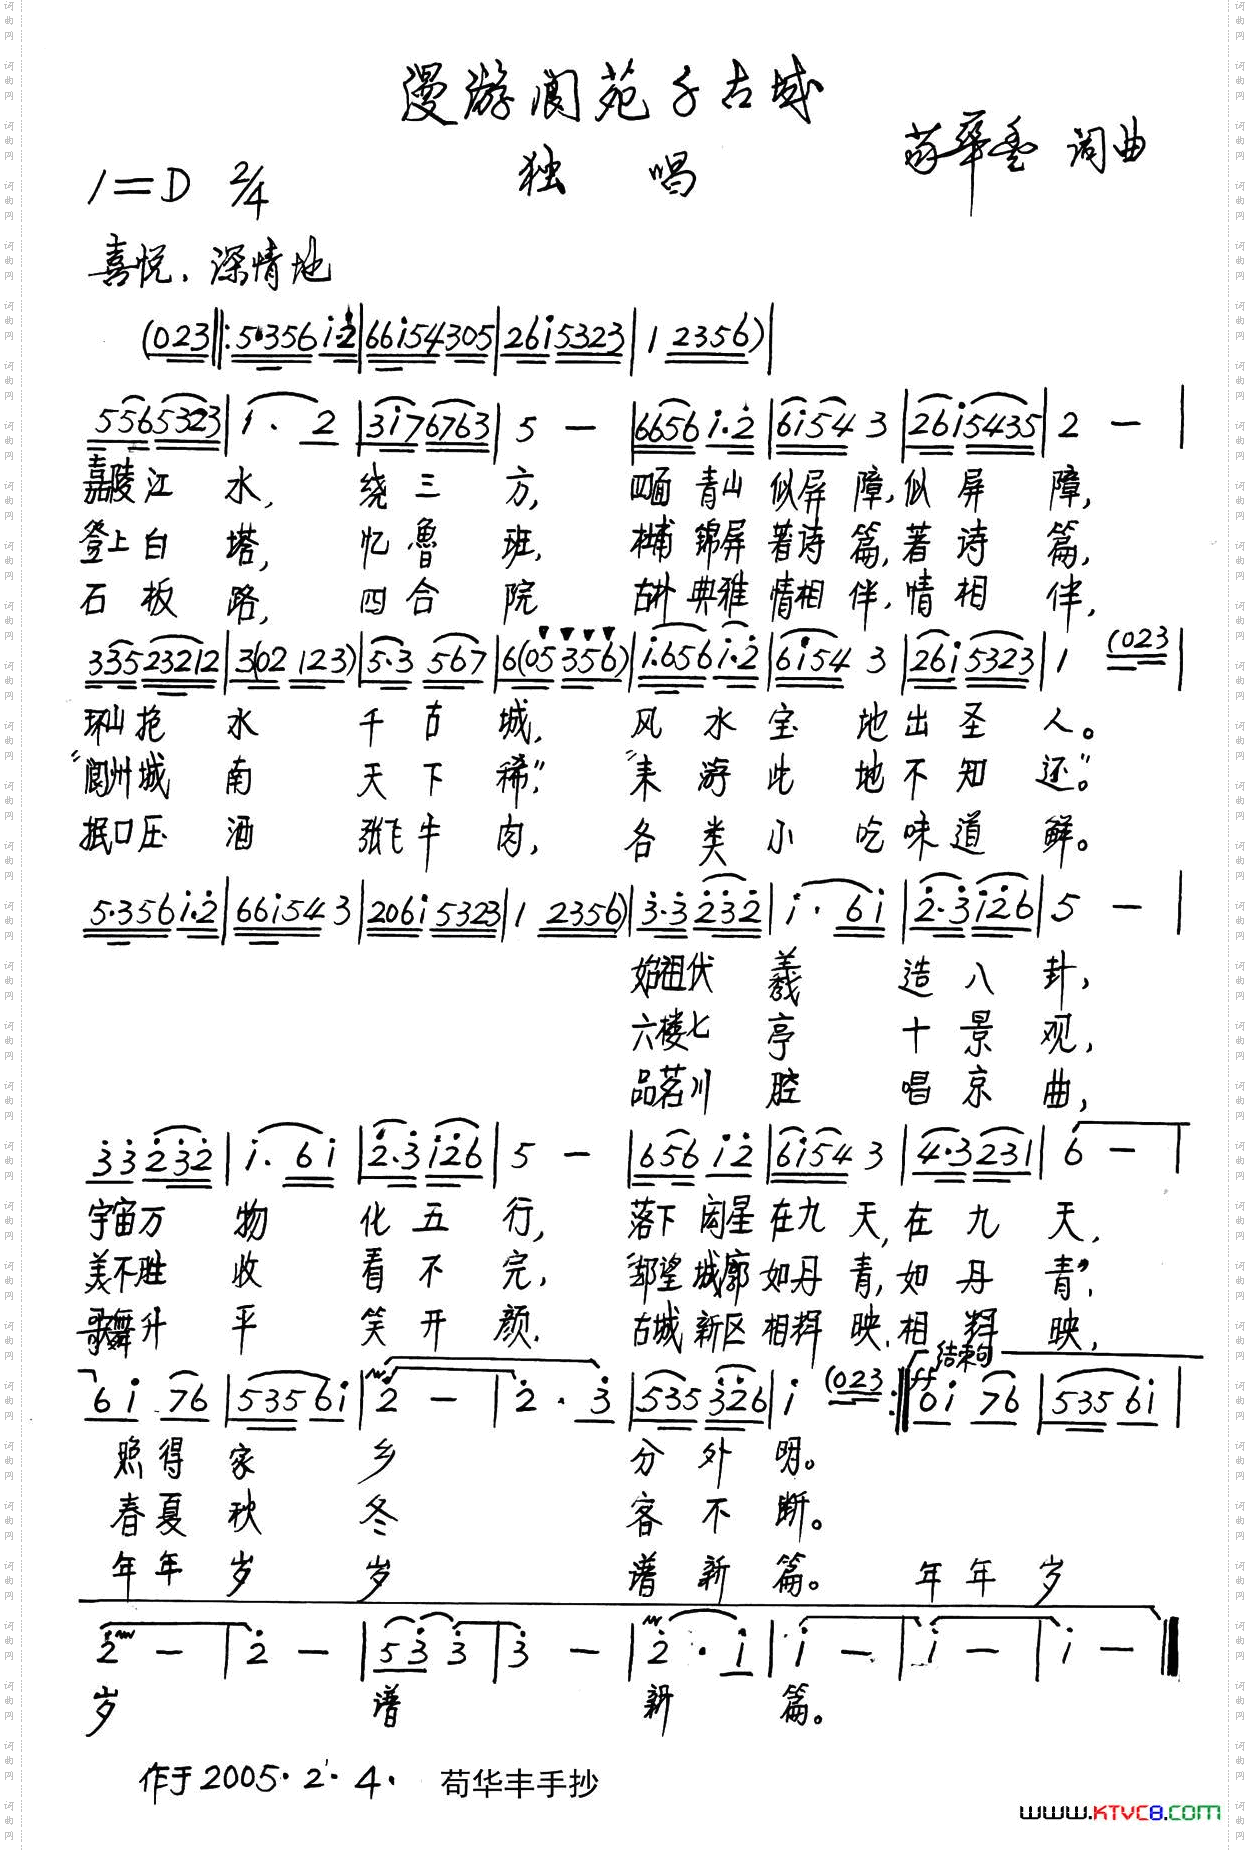 漫游阆苑千古城
独唱
苟華豊 词曲
1=D 2/4
喜悦、深情地
(023‖:5·356i·2|66i54305|26i5323|1 2356)|
5565323|1·2|3i76763|5 —|6656i·2|6i54 3|26i5435|2 —|
嘉陵江水,绕三方,四面青山似屏障,似屏障,
登上白塔,忆魯班,杜甫錦屏著诗篇,著诗篇,
石板路,四合院 古朴典雅情相伴,情相伴,
33523212|3(02 123)|5·3 567|6(05 356)|i·656i·2|6i54 3|26i5323|1 (023|
环山抱水千古城,风水宝地出圣人。
"阆州城南天下稀","来游此地不知还"。
抿口压酒张飞牛肉,各类小吃味道鲜。
5·356i·2|66i54 3|206i 5323|1 2356)|3·3232|i·6i|2·3i26|5 —|
始祖伏羲造八卦,
六楼七亭十景观,
品茗川腔唱京曲,
33232|i·6i|2·3i26|5 —|656 i2|6i54 3|4·3231|6 —|
宇宙万物化五行,落下闳星在九天,在九天,
美不胜收看不完,"邨望城廓如丹青,如丹青",
歌舞升平笑开颜.古城新区相辉映,相辉映,
结束句
6i 76|5356i|2 —|2·3|535326|i (023:‖ff 0i 76|535 6i|
照得家乡分外明。
春夏秋冬客不断。
年年岁岁谱新篇。年年岁
2 —|2 —|533|3 —|2·i|i —|i —|i —‖
岁谱新篇。
作于2005·2·4· 苟华丰手抄
www.KTVC8.com